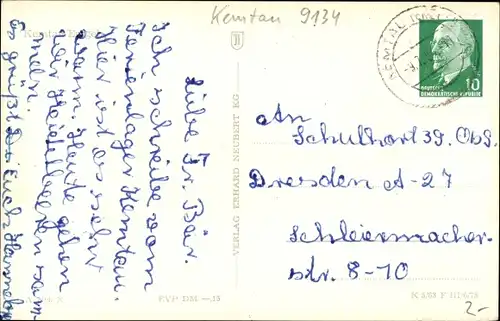 Kemtau 9134
Liebe Fr. Bär.
Ich schreibe vom
Ferienlager Kemtau.
Hier ist es sehr
warm. Heute gehen
wir Heidelbeeren sam-
meln.
Es grüßt Sie Euch Hannelore
VERLAG ERHARD NEUBERT KG
DEUTSCHE
DEMOKRATISCHE REPUBLIK
10
An
Schulhort 39. Obs.
Dresden A-27
Schleiermacher-
str. 8-10
2-